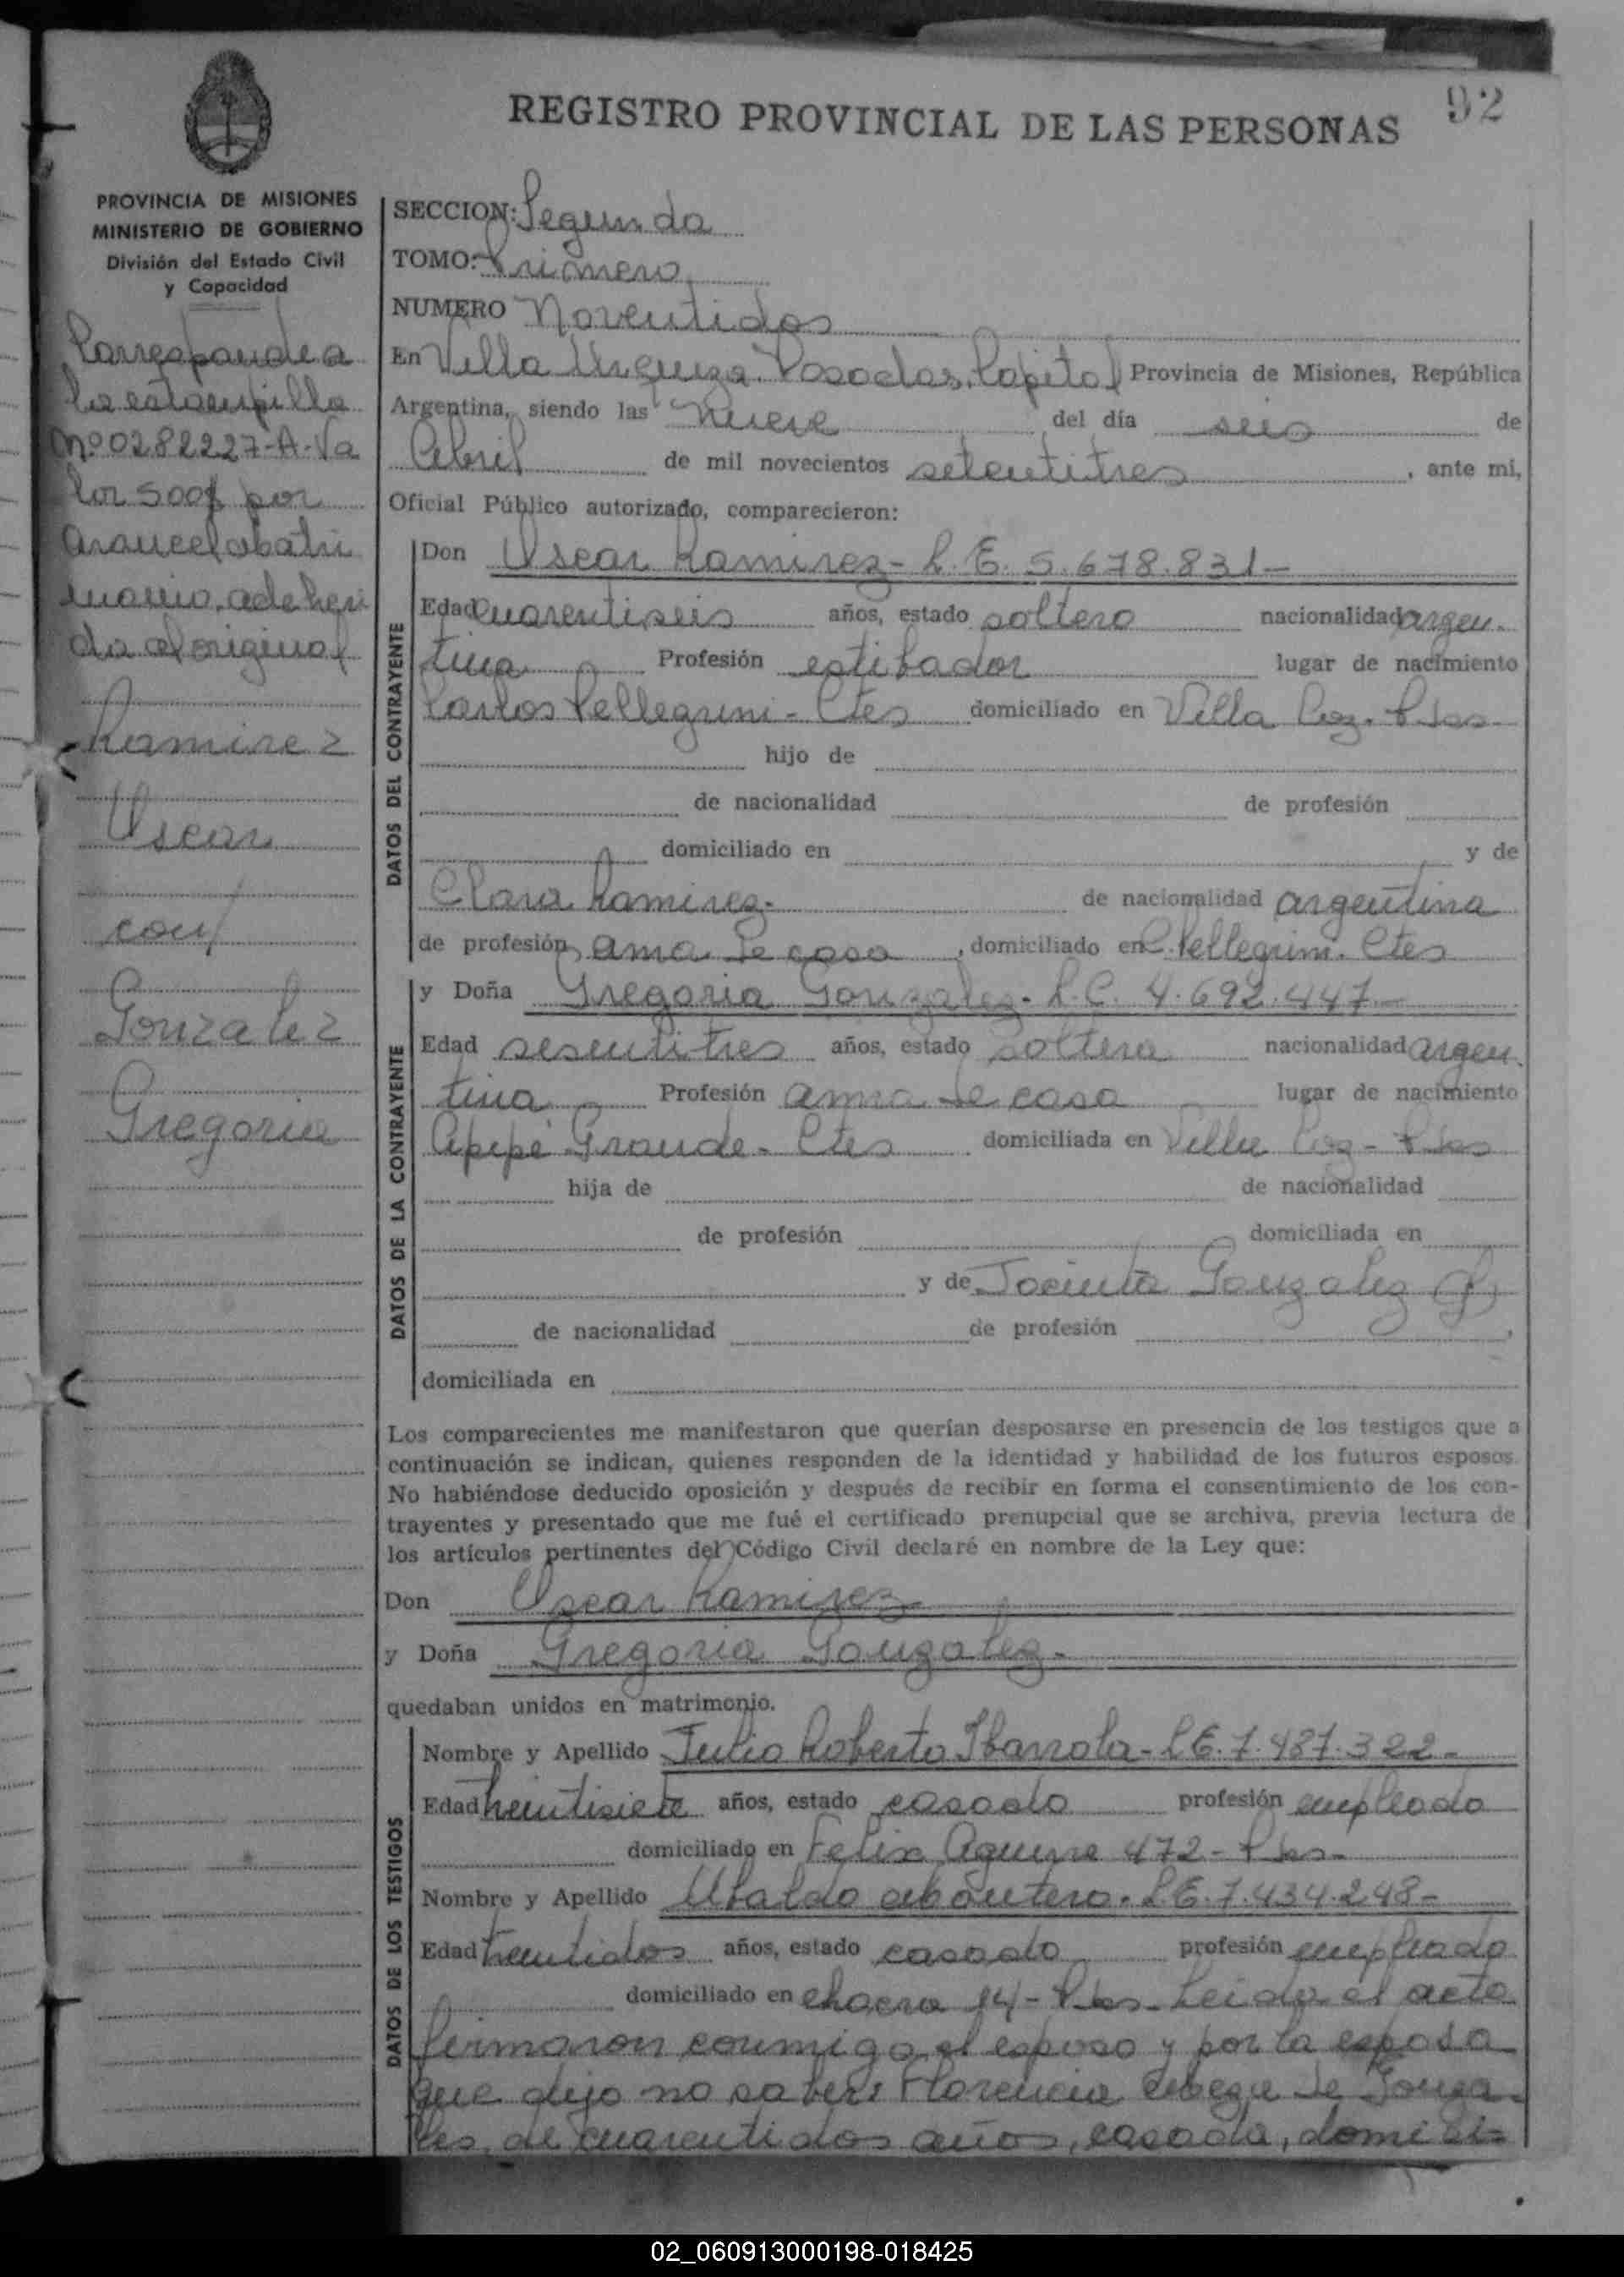 92
REGISTRO PROVINCIAL DE LAS PERSONAS
PROVINCIA DE MISIONES
MINISTERIO DE GOBIERNO
División del Estado Civil
y Capacidad
Corresponde a
la estampilla
Nº 0282227-A-Va
lor 500$ por
arancel matri
monio, adheri
da al original
Ramirez
Oscar
con
Gonzalez
Gregoria
SECCION: Segunda
TOMO: Primero
NUMERO Noventidos
En Villa Urquiza. Posadas. Capital Provincia de Misiones, República
Argentina, siendo las nueve del día seis de
Abril de mil novecientos setentitres, ante mi,
Oficial Público autorizado, comparecieron:
DATOS DEL CONTRAYENTE
Don Oscar Ramirez - L.E. 5.678.831-
Edad cuarentiseis años, estado soltero nacionalidad argen-
tina Profesión estibador lugar de nacimiento
Carlos Pellegrini - Ctes domiciliado en Villa Coz. Pdas-
hijo de
de nacionalidad de profesión
domiciliado en y de
Clara Ramirez- de nacionalidad argentina
de profesión ama de casa, domiciliado en C. Pellegrini. Ctes
DATOS DE LA CONTRAYENTE
y Doña Gregoria Gonzalez - L.C. 4.692.447-
Edad sesentitres años, estado soltera nacionalidad argen-
tina Profesión ama de casa lugar de nacimiento
Apipé Grande - Ctes domiciliada en Villa Coz - Pdas
hija de de nacionalidad
de profesión domiciliada en
y de Jacinta Gonzalez (f)
de nacionalidad de profesión,
domiciliada en
Los comparecientes me manifestaron que querían desposarse en presencia de los testigos que a
continuación se indican, quienes responden de la identidad y habilidad de los futuros esposos.
No habiéndose deducido oposición y después de recibir en forma el consentimiento de los con-
trayentes y presentado que me fué el certificado prenupcial que se archiva, previa lectura de
los artículos pertinentes del Código Civil declaré en nombre de la Ley que:
Don Oscar Ramirez
y Doña Gregoria Gonzalez-
quedaban unidos en matrimonio.
DATOS DE LOS TESTIGOS
Nombre y Apellido Julio Roberto Ibarrola - L.E. 7.487.322-
Edad treintisiete años, estado casado profesión empleado
domiciliado en Felix Aguirre 472 - Pdas-
Nombre y Apellido Ubaldo - L.E. 7.434.248-
Edad treintidos años, estado casado profesión empleado
domiciliado en chacra 14 - Pdas - Leida el acta
firmaron conmigo el esposo y por la esposa
que dijo no saber: Florencia de Gonza-
les, de cuarentidos años, casada, domici-
02_060913000198-018425